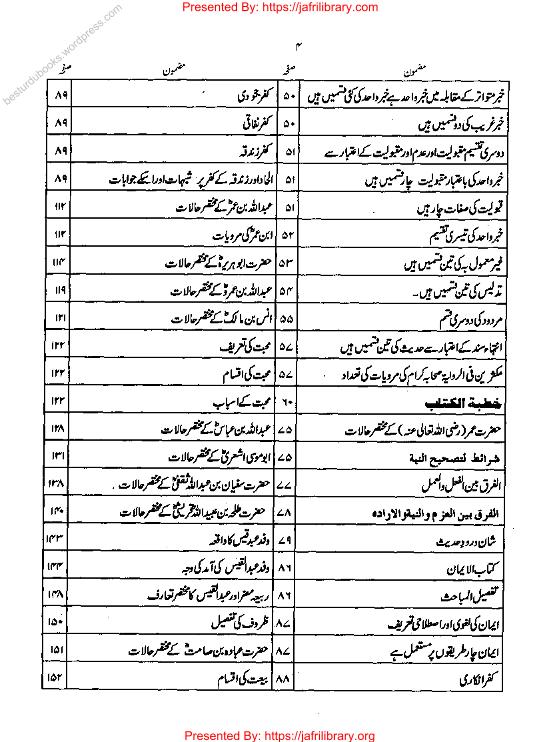 Presented By: https://jafrilibrary.com
besturdubooks.wordpress.com
۴
مضمون صفحہ مضمون صفحہ
خبر متواتر کے مقابلہ میں خبر واحد ہے خبر واحد کی کئی قسمیں ہیں ۵۰ کفر جحودی ۸۹
خبر غریب کی دو قسمیں ہیں ۵۰ کفر نفاقی ۸۹
دوسری تقسیم مقبولیت اور عدم اور مقبولیت کے اعتبار سے ۵۱ کفر زندقہ ۸۹
خبر واحد کی باعتبار مقبولیت چار قسمیں ہیں ۵۱ الحاد اور زندقہ کے کفر پر شبہات اور اسکے جوابات ۸۹
قبولیت کی صفات چار ہیں ۵۱ عبداللہ بن عمرؓ کے مختصر حالات ۱۱۲
خبر واحد کی تیسری تقسیم ۵۲ ابن عمرؓ کی مرویات ۱۱۳
غیر معمول بہ کی تین قسمیں ہیں ۵۳ حضرت ابو ہریرہؓ کے مختصر حالات ۱۱۴
تدلیس کی تین قسمیں ہیں۔ ۵۴ عبداللہ بن عمروؓ کے مختصر حالات ۱۱۹
مردود کی دوسری قسم ۵۵ انس بن مالکؓ کے مختصر حالات ۱۲۱
انتہاء سند کے اعتبار سے حدیث کی تین قسمیں ہیں ۵۷ محبت کی تعریف ۱۲۲
مکثرین فی الروایۃ صحابہ کرام کی مرویات کی تعداد ۵۷ محبت کی اقسام ۱۲۲
خطبة الكتاب ۶۰ محبت کے اسباب ۱۲۲
حضرت عمر (رضی اللہ تعالی عنہ) کے مختصر حالات ۷۵ عبداللہ بن عباسؓ کے مختصر حالات ۱۲۸
شرائط لتصحیح النیة ۷۵ ابو موسی اشعریؓ کے مختصر حالات ۱۳۱
الفرق بین الفعل والعمل ۷۷ حضرت سفیان بن عبداللہ ثقفیؓ کے مختصر حالات ۱۳۸
الفرق بین العزم والنیة والارادہ ۷۸ حضرت طلحہ بن عبید اللہ قریشیؓ کے مختصر حالات ۱۴۰
شان درود حدیث ۷۹ وفد عبد قیس کا واقعہ ۱۴۳
کتاب الایمان ۸۶ وفد عبد القیس کی آمد کی وجہ ۱۴۴
تفصیل المباحث ۸۶ ربیعہ مضر اور عبد القیس کا مختصر تعارف ۱۴۸
ایمان کی لغوی اور اصطلاحی تعریف ۸۷ ظروف کی تفصیل ۱۵۰
ایمان چار طریقوں پر مستعمل ہے ۸۷ حضرت عبادہ بن صامتؓ کے مختصر حالات ۱۵۱
کفر انکاری ۸۸ بیعت کی اقسام ۱۵۲
Presented By: https://jafrilibrary.org